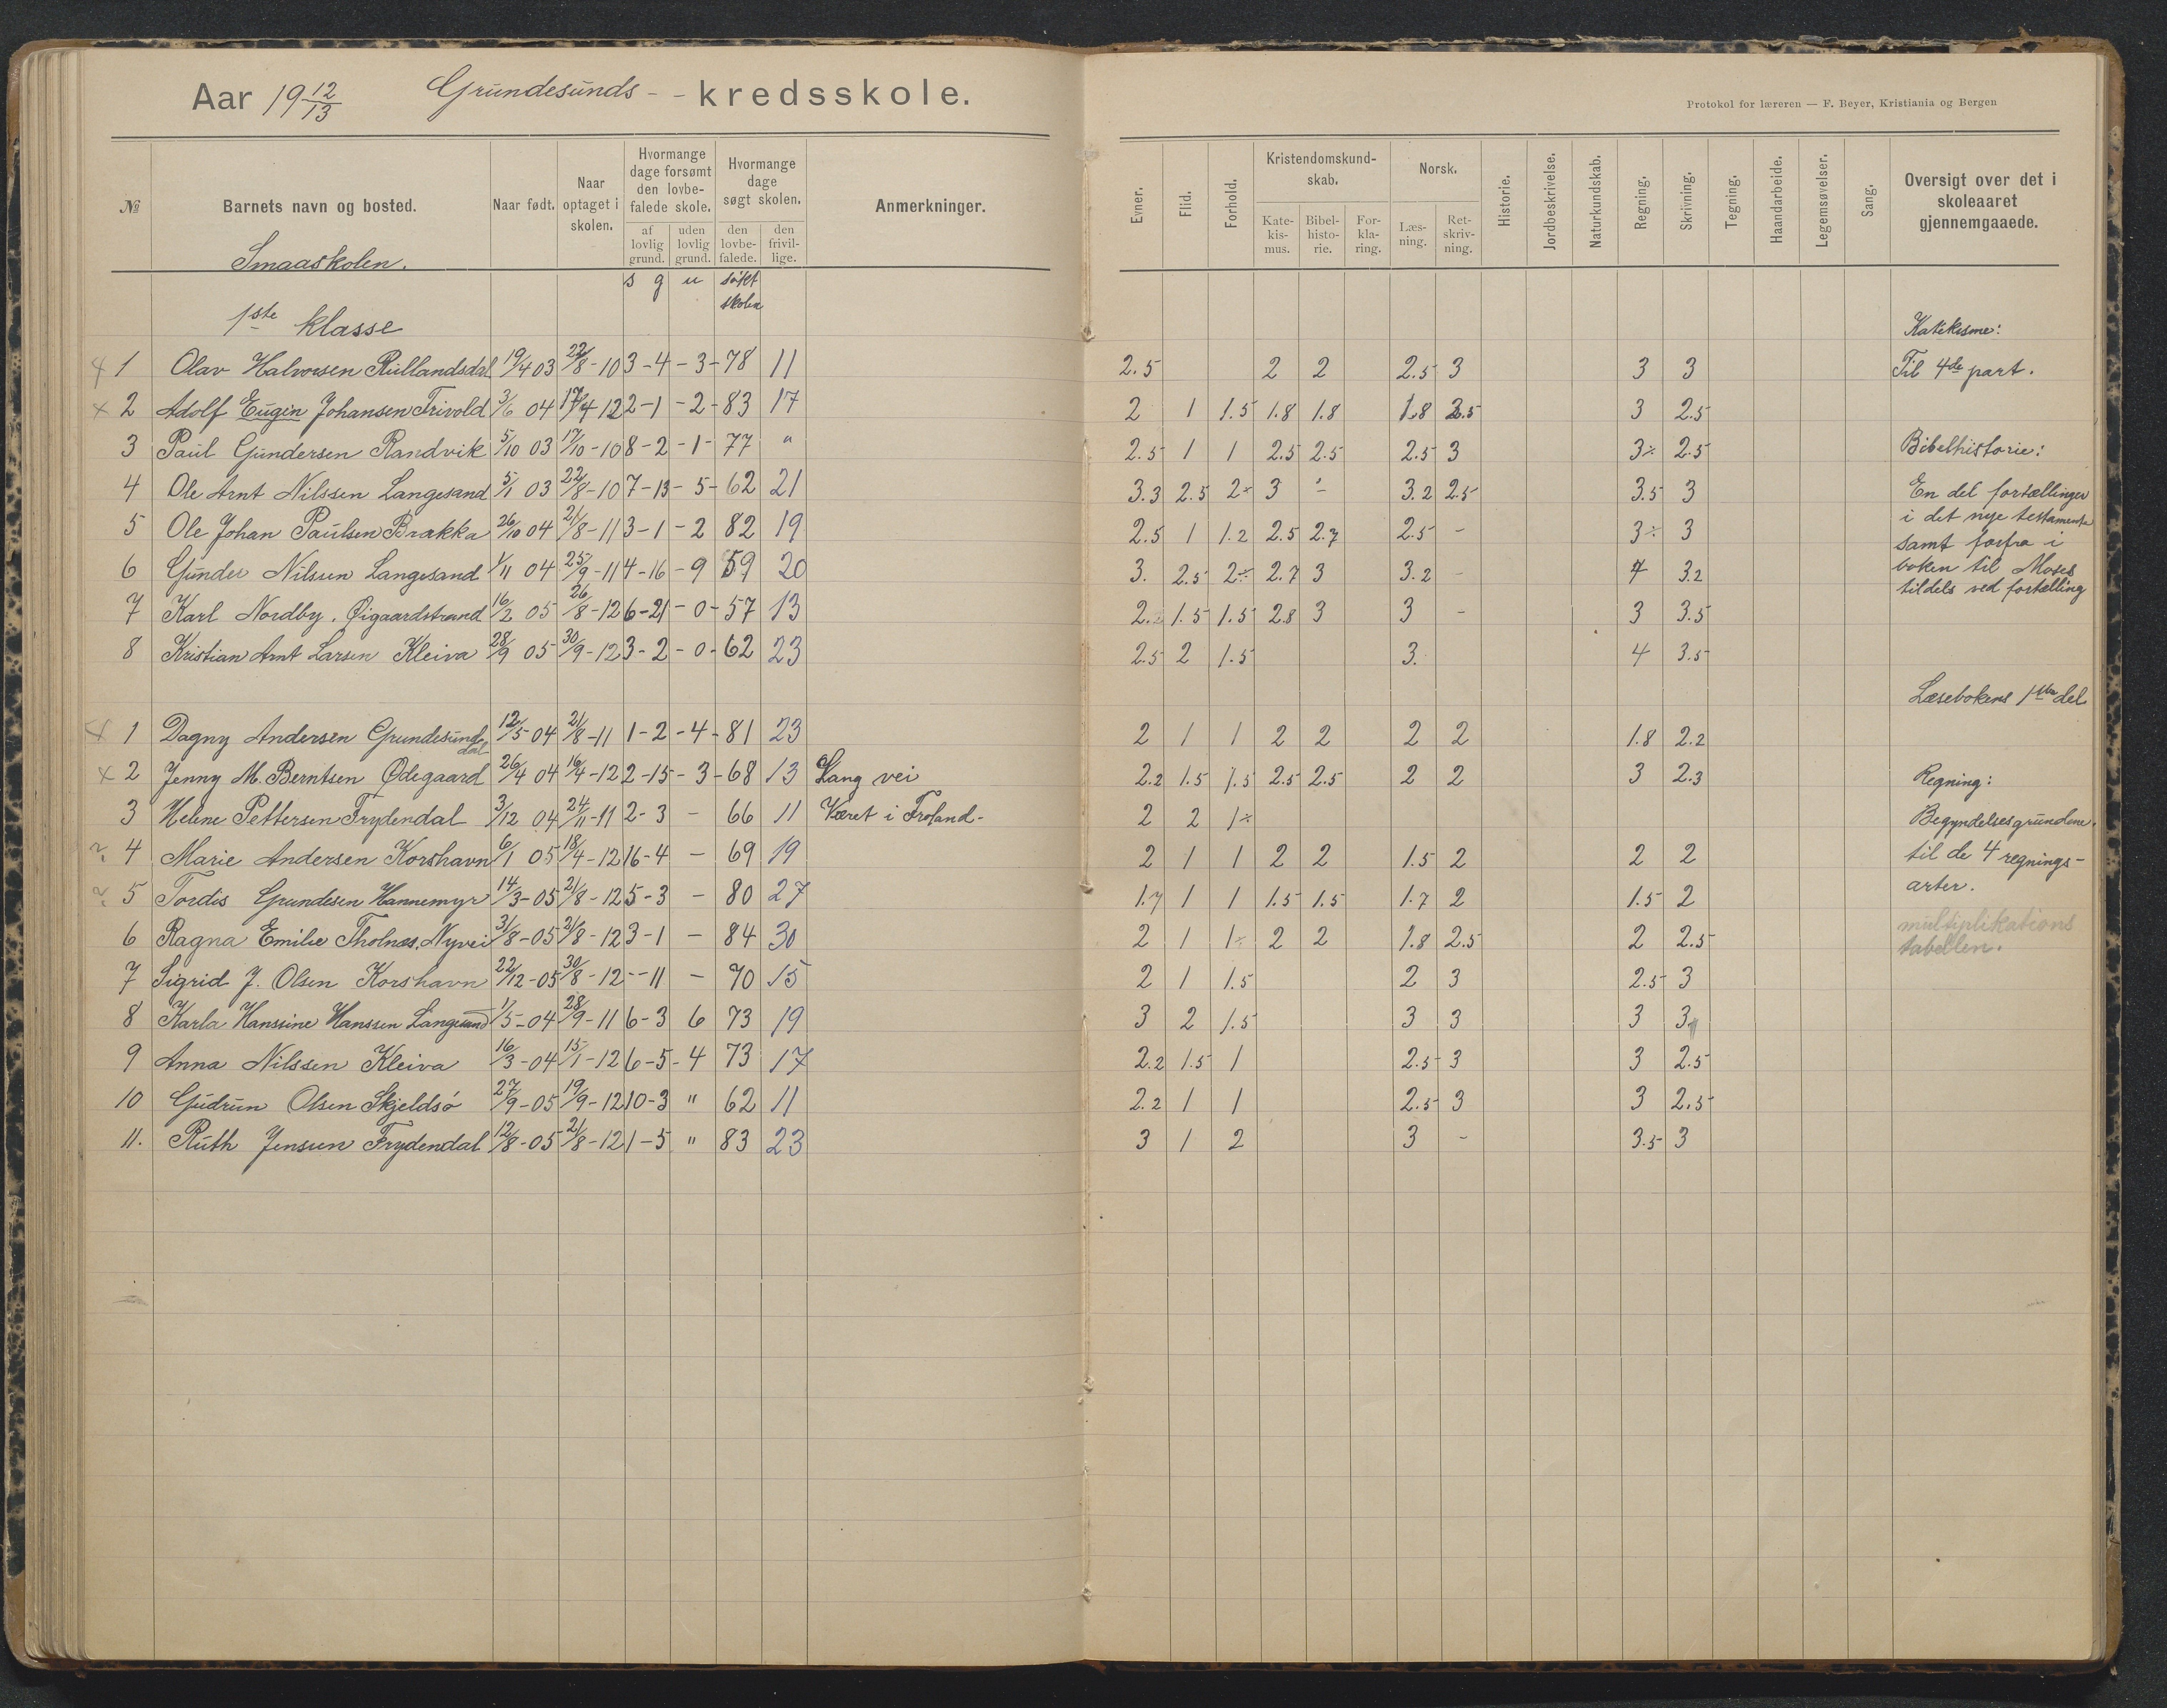 Aar 19 12/13 Grundesunds - - kredsskole.
Protokol for læreren — F. Beyer, Kristiania og Bergen
№ Barnets navn og bosted. Naar født. Naar optaget i skolen. Hvormange dage forsømt den lovbefalede skole. af lovlig grund. uden lovlig grund. Hvormange dage søgt skolen. den lovbefalede. den frivillige. Anmerkninger.
Evner. Flid. Forhold. Kristendomskundskab. Katekismus. Bibelhistorie. Forklaring. Norsk. Læsning. Retskrivning. Historie. Jordbeskrivelse. Naturkundskab. Regning. Skrivning. Tegning. Haandarbeide. Legemsøvelser. Sang. Oversigt over det i skoleaaret gjennemgaaede.
Smaaskolen.
s g u søkt skolen
1ste klasse
1 Olav Halvorsen Rullandsdal 19/4 03 22/8-10 3-4-3-78 11 2.5 2 2 2.5 3 3 3
x 2 Adolf Eugin Johansen Trivold 3/6 04 17/4 12 2-1-2-83 17 2 1 1.5 1.8 1.8 1.8 2.5 3 2.5
3 Paul Gundersen Randvik 5/10 03 17/10-10 8-2-1-77 " 2.5 1 1 2.5 2.5 2.5 3 3÷ 2.5
4 Ole Arnt Nilssen Langesand 5/1 03 22/8-10 7-13-5-62 21 3.3 2.5 2÷ 3 - 3.2 2.5 3.5 3
5 Ole Johan Paulsen Brakka 26/10 04 21/8-11 3-1-2 82 19 2.5 1 1.2 2.5 2.7 2.5 - 3÷ 3
6 Gunder Nilssen Langesand 1/11 04 25/9-11 4-16-9 59 20 3. 2.5 2÷ 2.7 3 3.2 - 4 3.2
7 Karl Nordby. Øigaardstrand 16/2 05 26/8-12 6-21-0-57 13 2.2 1.5 1.5 2.8 3 3 - 3 3.5
8 Kristian Arnt Larsen Kleiva 28/9 05 30/9-12 3-2-0-62 23 2.5 2 1.5 3. 4 3.5
1 Dagny Andersen Grundesundsdal 12/5-04 21/8-11 1-2-4-81 23 2 1 1 2 2 2 2 1.8 2.2
x 2 Jenny M. Berntsen Ødegaard 26/4 04 16/4-12 2-15-3-68 13 Lang vei 2.2 1.5 1.5 2.5 2.5 2 2 3 2.3
3 Helene Pettersen Frydendal 3/12 04 24/11-11 2-3 - 66 11 Været i Froland- 2 2 1÷
? 4 Marie Andersen Korshavn 6/1 05 18/4-12 16-4 - 69 19 2 1 1 2 2 1.5 2 2 2
? 5 Tordis Grundesen Hannemyr 14/3-05 21/8-12 5-3 - 80 27 1.7 1 1 1.5 1.5 1.7 2 1.5 2
6 Ragna Emilie Tholnæs, Nyvei 31/8-05 21/8-12 3-1 - 84 30 2 1 1÷ 2 2 1.8 2.5 2 2.5
7 Sigrid J. Olsen Korshavn 22/12-05 30/8-12 --11 - 70 15 2 1 1.5 2 3 2.5 3
8 Karla Hanssine Hanssen Langesand 1/5-04 28/9-11 6-3 6 73 19 3 2 1.5 3 3 3 3
9 Anna Nilssen Kleiva 16/3-04 15/1-12 6-5-4 73 17 2.2 1.5 1 2.5 3 3 2.5
10 Gudrun Olsen Skjeldsø 27/9-05 19/9-12 10-3 " 62 11 2.2 1 1 2.5 3 3 2.5
11. Ruth Jensen Frydendal 12/8-05 21/8-12 1-5 " 83 23 3 1 2 3 - 3.5 3
Katekisme:
Til 4de part.
Bibelhistorie:
En del fortællinger
i det nye testamente
samt forfra i
boken til Moses
tildels ved fortælling
Læsebokens 1ste del
Regning:
Begyndelsesgrundene
til de 4 regnings-
arter.
multiplikations
tabellen.